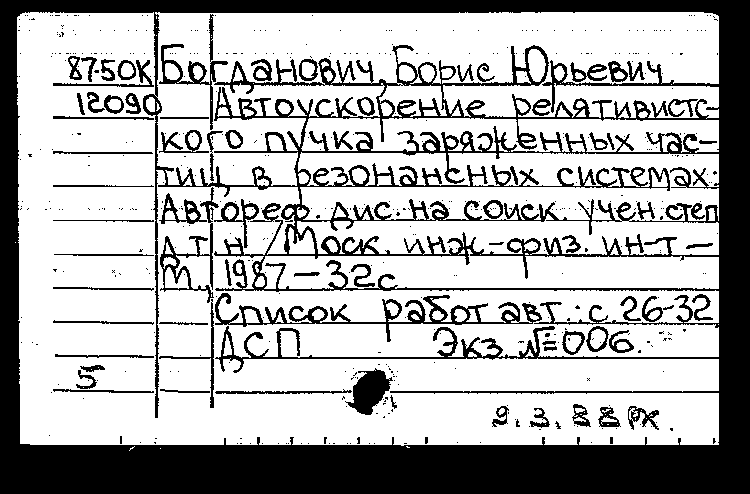 87-50К Богданович, Борис Юрьевич.
12090 Автоускорение релятивистс-
кого пучка заряженных час-
тиц в резонансных системах:
Автореф. дис. на соиск. учен. степ
д.т.н / Моск. инж.-физ. ин-т. -
М., 1987. - 32 с
Список работ авт.: с. 26-32.
ДСП. Экз. №006.
5
9.3.88 РХ.